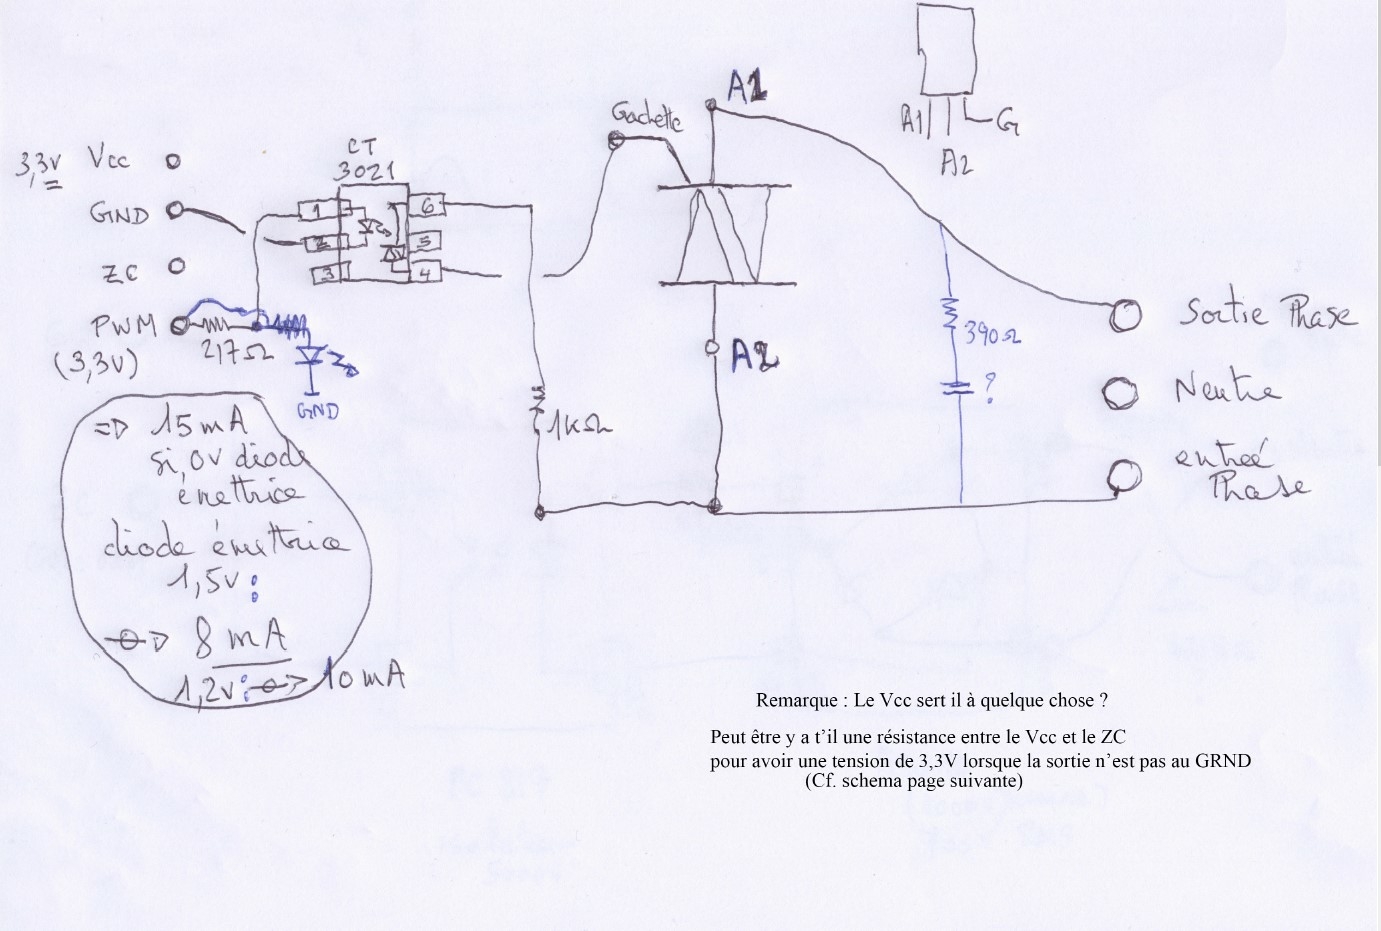 3,3v Vcc
GND
ZC
PWM
(3,3V)
217Ω
GND
CT
3021
1
2
3
6
5
4
Gachette
A1
A2
1KΩ
A1
G
A2
390Ω
?
Sortie Phase
Neutre
entreé
Phase
=> 15 mA
si 0v diode
émettrice
diode émittrice
1,5v :
=> 8 mA
1,2v : => 10 mA
Remarque : Le Vcc sert il à quelque chose ?
Peut être y a t'il une résistance entre le Vcc et le ZC
pour avoir une tension de 3,3V lorsque la sortie n'est pas au GRND
(Cf. schema page suivante)